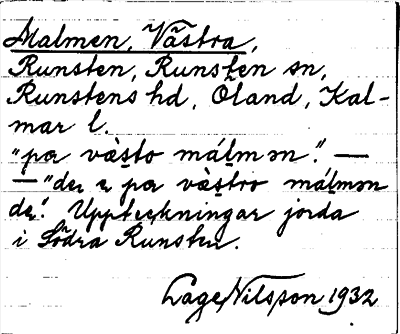 Malmen, Västra,
Runsten, Runsten sn,
Runstens hd, Öland, Kal-
mar l.
"pɑ vàsto málmən." —
— "de æ pɑ vàstro málmən
de". Uppteckningar jorda
i Södra Runsten.
Lage Nilsson 1932